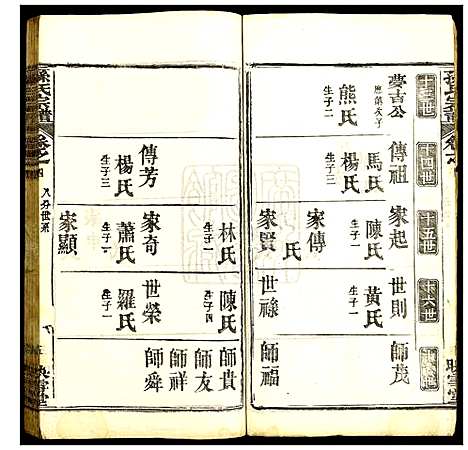 孫氏宗譜
卷之
十三世
十四世
十五世
十六世
夢吉公
熊氏
生子二
傳祖
馬氏
生子二
家起
陳氏
生子一
世則
黃氏
生子一
師茂
家傳
氏
家賢
世祿
師福
林氏
生子一
陳氏
生子四
師貴
師友
傳芳
楊氏
生子三
家奇
蕭氏
生子一
世榮
羅氏
生子一
師祥
師舜
家顯
孫氏宗譜
卷之
四
八分世系
映雪堂